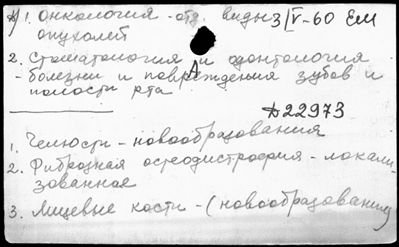 1. Онкология - отд. виды 3/V-60 Ем
опухолей
2. Стоматология и одонтология
- болезни и повреждения зубов и
полости рта
Д22973
1. Челюсти - новообразования
2. Фиброзная остеодистрофия - локали-
зованное
3. Лицевые кости - (новообразования)